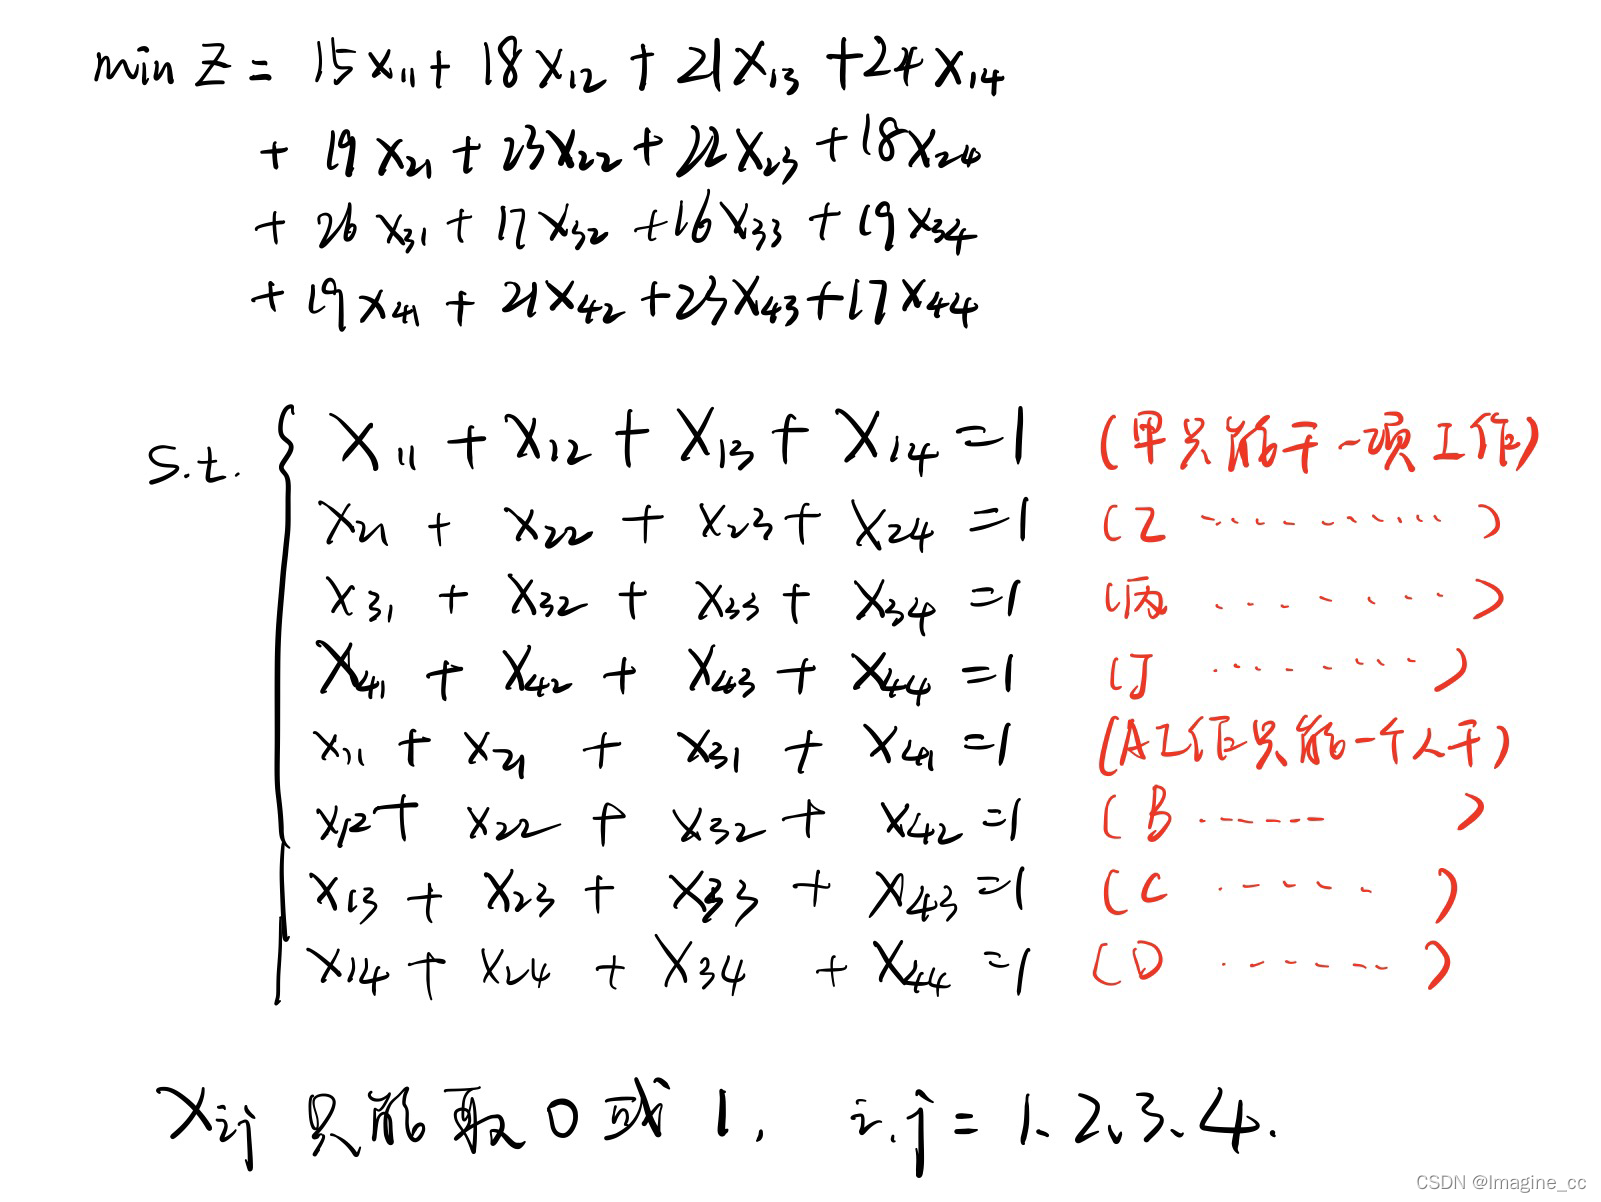 min Z = 15x₁₁ + 18x₁₂ + 21x₁₃ + 24x₁₄
+ 19x₂₁ + 23x₂₂ + 22x₂₃ + 18x₂₄
+ 26x₃₁ + 17x₃₂ + 16x₃₃ + 19x₃₄
+ 19x₄₁ + 21x₄₂ + 23x₄₃ + 17x₄₄
s.t. { x₁₁ + x₁₂ + x₁₃ + x₁₄ = 1 (甲只能干一项工作)
x₂₁ + x₂₂ + x₂₃ + x₂₄ = 1 (乙 ············)
x₃₁ + x₃₂ + x₃₃ + x₃₄ = 1 (丙 ········)
x₄₁ + x₄₂ + x₄₃ + x₄₄ = 1 (丁 ·········)
x₁₁ + x₂₁ + x₃₁ + x₄₁ = 1 (A工作只能一个人干)
x₁₂ + x₂₂ + x₃₂ + x₄₂ = 1 (B ······)
x₁₃ + x₂₃ + x₃₃ + x₄₃ = 1 (C ·····)
x₁₄ + x₂₄ + x₃₄ + x₄₄ = 1 (D ·······)
xᵢⱼ 只能取 0 或 1, i.j = 1、2、3、4.
CSDN @Imagine_cc